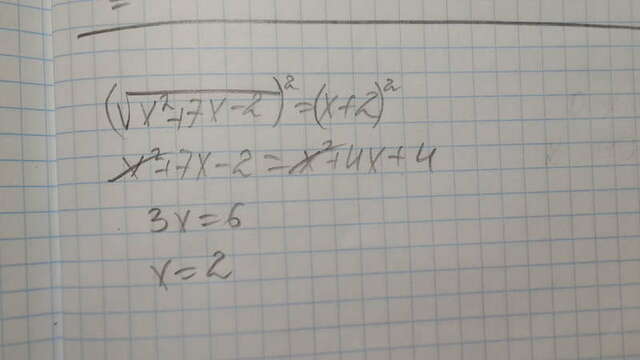 (√x²+7x-2)²=(x+2)²
x²+7x-2=x²+4x+4
3x=6
x=2